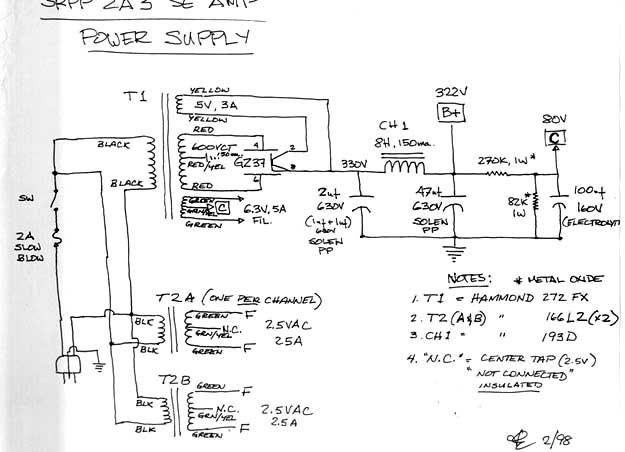 SRPP 2A3 SE AMP
POWER SUPPLY
T1
YELLOW
5V, 3A
YELLOW
RED
600VCT
150ma.
RED/YEL
RED
GREEN
GRN/YEL
C
6.3V, 5A
FIL.
GREEN
BLACK
BLACK
4
2
GZ37
8
6
330V
CH 1
8H, 150ma.
322V
B+
80V
C
270K, 1W*
2uf
630V
(1uf+1uf)
630V
SOLEN
PP
47uf
630V
SOLEN
PP
82K*
1W
100uf
160V
(ELECTROLYT
SW
2A
SLOW
BLOW
T2A (ONE PER CHANNEL)
BLK
BLK
GREEN
F
N.C.
GRN/YEL
GREEN
F
2.5VAC
2.5A
T2B
BLK
BLK
GREEN
F
N.C.
GRN/YEL
GREEN
F
2.5VAC
2.5A
NOTES: * METAL OXIDE
1. T1 = HAMMOND 272 FX
2. T2 (A&B) " 166L2 (x2)
3. CH1 = " 193D
4. "N.C." = CENTER TAP (2.5V)
"NOT CONNECTED"
INSULATED
2/98